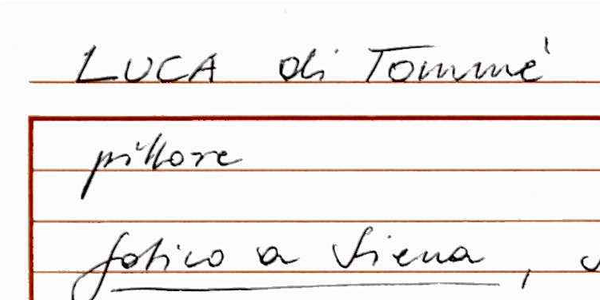 LUCA di Tommè
pittore
gotico a Siena,